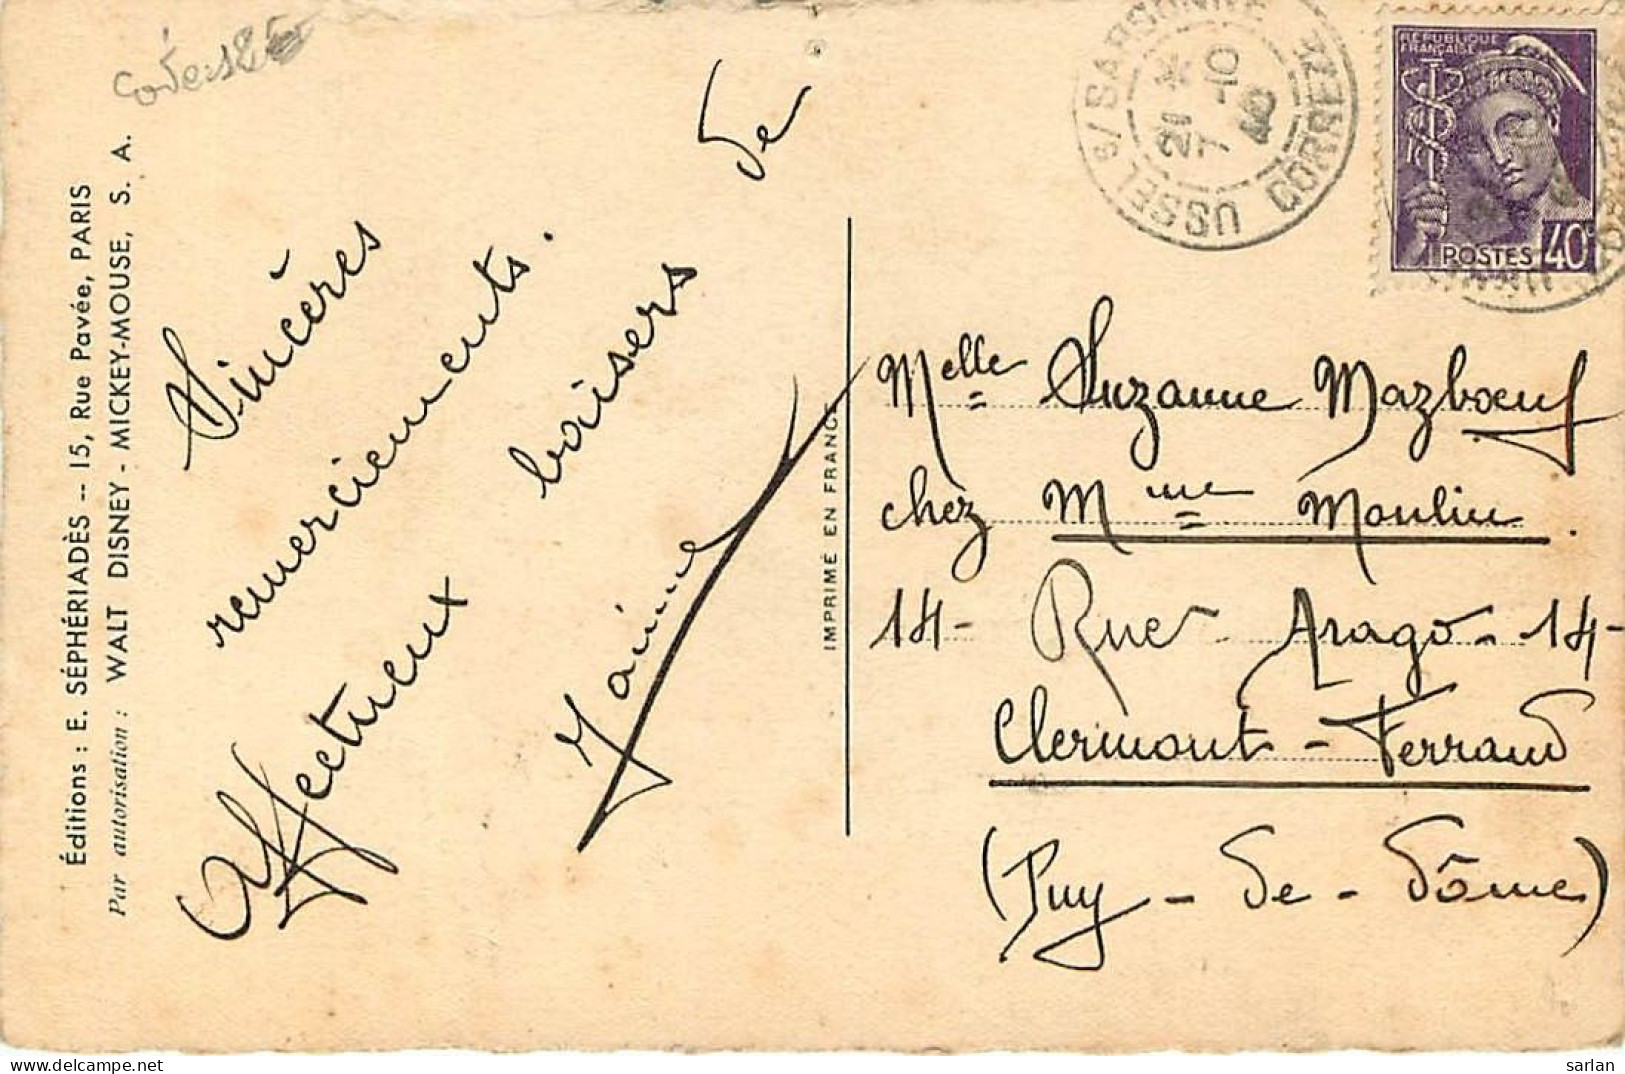 Éditions : E. SÉPHÉRIADÈS -- 15, Rue Pavée, PARIS
Par autorisation : WALT DISNEY - MICKEY-MOUSE, S. A.
Sincères
remerciements.
Affectueux baisers de
Yaimme
IMPRIMÉ EN FRANCE
USSEL S/ SARSONNE
CORRÈZE
21 *
7 -10
40
RÉPUBLIQUE
FRANÇAISE
POSTES 40c
Melle Suzanne Mazbœuf
chez Mme Moulin.
14- Rue Arago - 14-
Clermont - Ferrand
(Puy - de - Dôme)
sarlan